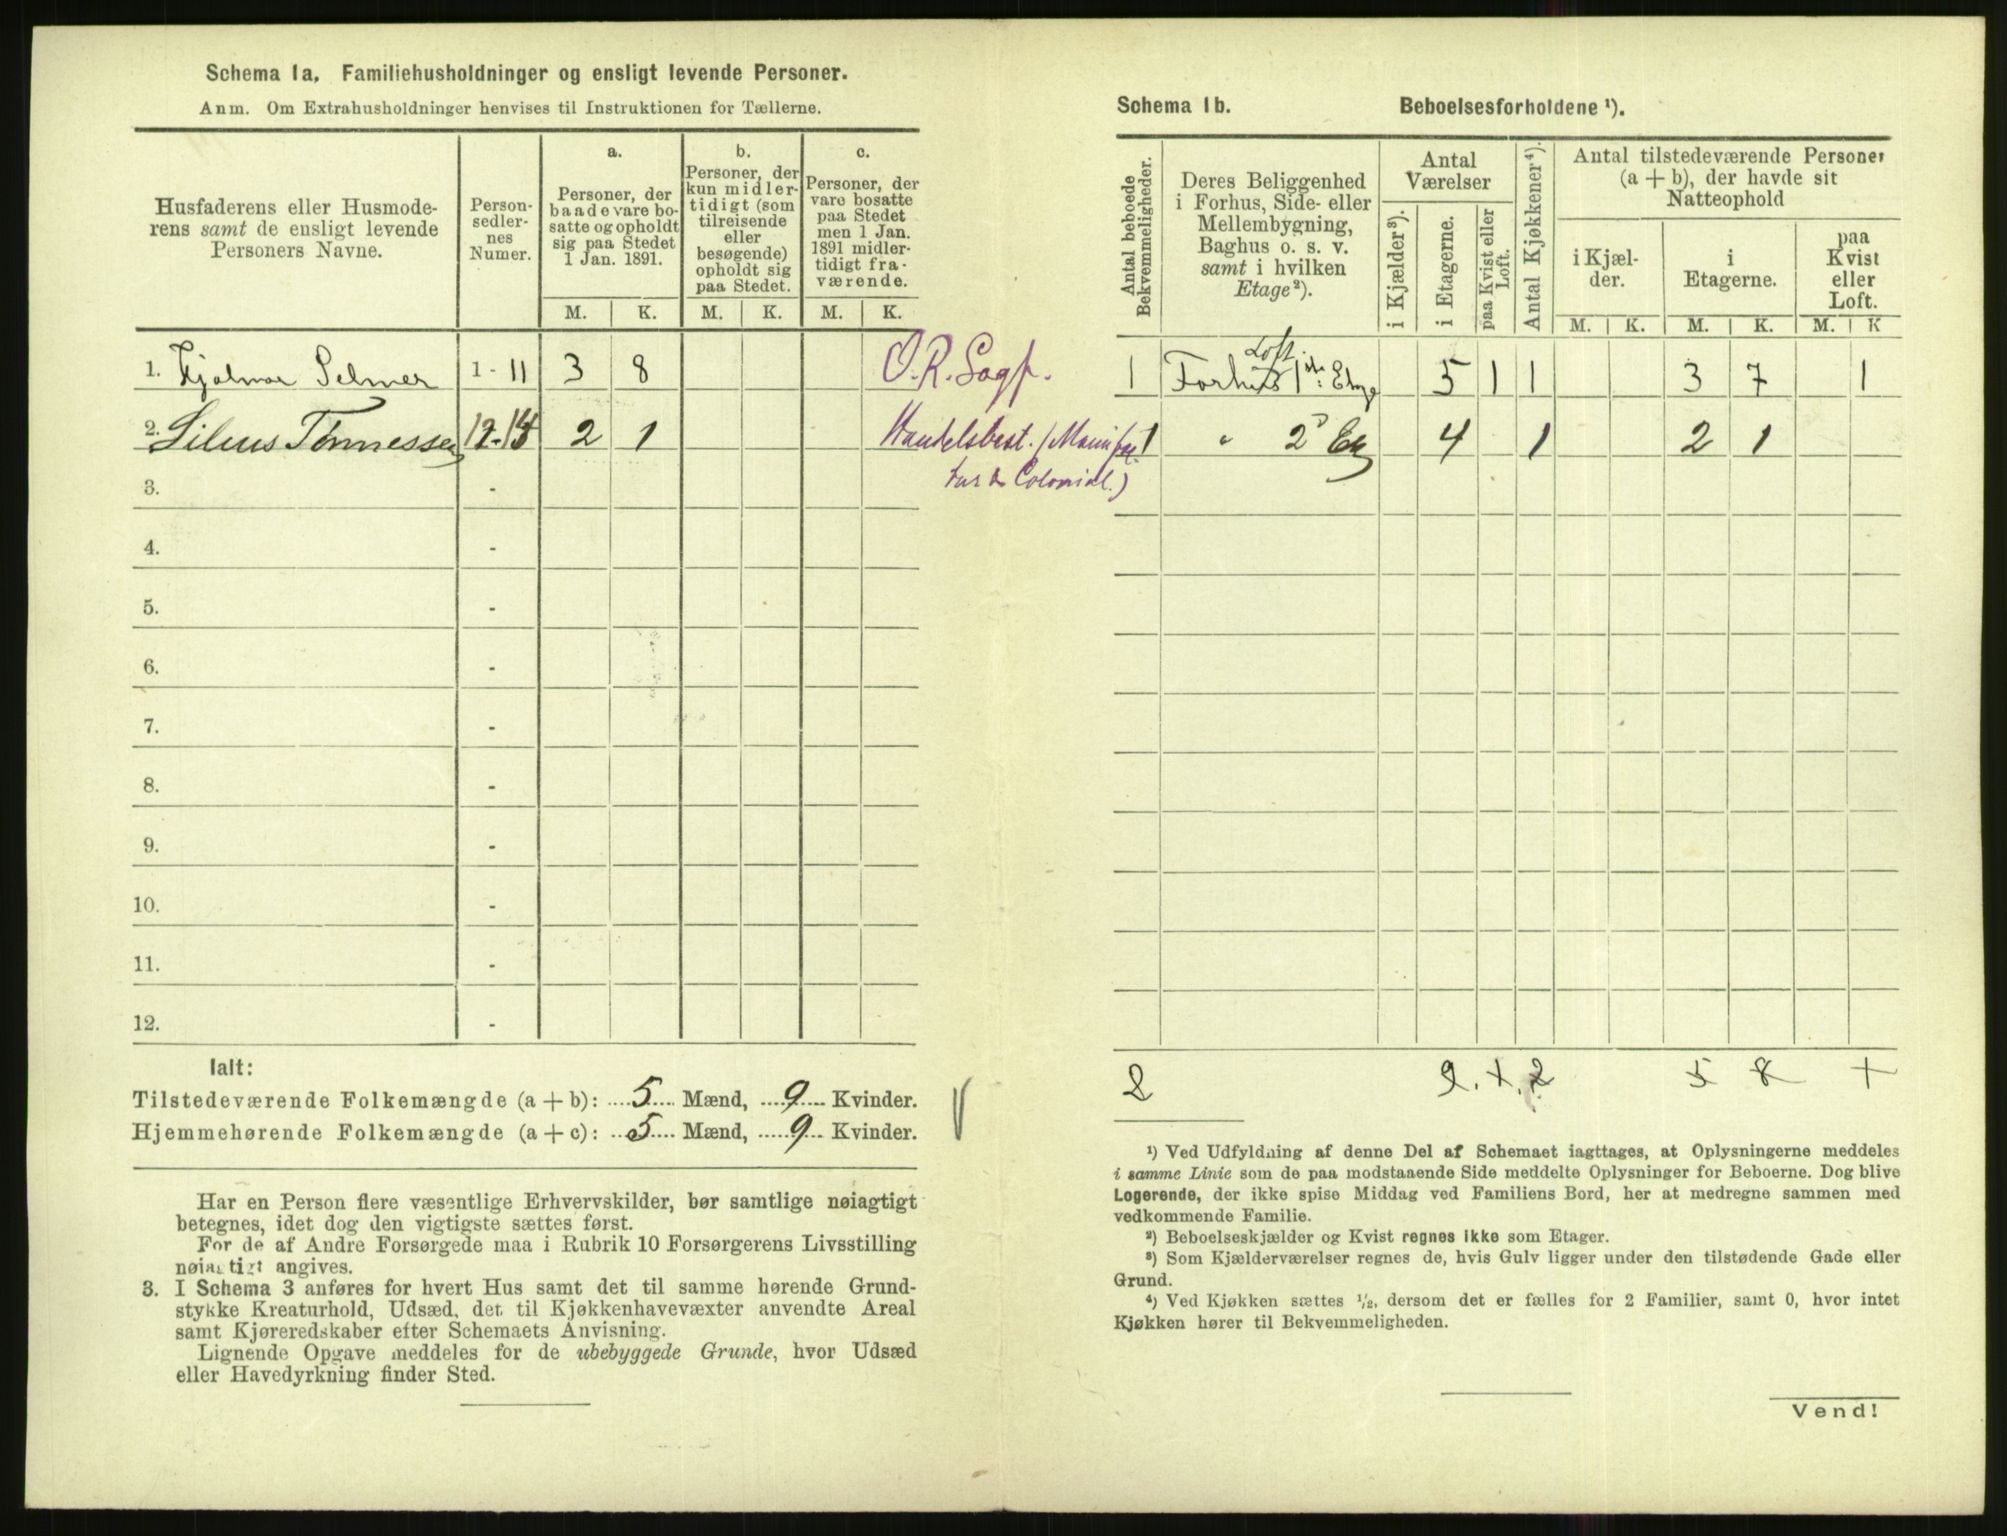 Schema 1a. Familiehusholdninger og ensligt levende Personer.
Anm. Om Extrahusholdninger henvises til Instruktionen for Tællerne.
Husfaderens eller Husmode-
rens samt de ensligt levende
Personers Navne.
Person-
sedler-
nes
Numer.
a.
Personer, der
baade vare bo-
satte og opholdt
sig paa Stedet
1 Jan. 1891.
b.
Personer, der
kun midler-
tidigt (som
tilreisende
eller
besøgende)
opholdt sig
paa Stedet.
c.
Personer, der
vare bosatte
paa Stedet
men 1 Jan.
1891 midler-
tidigt fra-
værende.
M. K. M. K. M. K.
1. Hjalmar Selmer 1 - 11 3 8 O.R. Sagf.
2. Silius Tønnessen 12-14 2 1 Handelsbest. (Manufac-
tur & Colonial.)
3. -
4. -
5. -
6. -
7. -
8. -
9. -
10. -
11. -
12. -
Ialt:
Tilstedeværende Folkemængde (a + b): 5 Mænd, 9 Kvinder.
Hjemmehørende Folkemængde (a + c): 5 Mænd, 9 Kvinder.
Har en Person flere væsentlige Erhvervskilder, bør samtlige nøiagtigt
betegnes, idet dog den vigtigste sættes først.
For de af Andre Forsørgede maa i Rubrik 10 Forsørgerens Livsstilling
nøiagtigt angives.
3. I Schema 3 anføres for hvert Hus samt det til samme hørende Grund-
stykke Kreaturhold, Udsæd, det til Kjøkkenhavevæxter anvendte Areal
samt Kjøreredskaber efter Schemaets Anvisning.
Lignende Opgave meddeles for de ubebyggede Grunde, hvor Udsæd
eller Havedyrkning finder Sted.
Schema 1b. Beboelsesforholdene ¹).
Antal beboede
Bekvemmeligheder.
Deres Beliggenhed
i Forhus, Side- eller
Mellembygning,
Baghus o. s. v.
samt i hvilken
Etage²).
Antal
Værelser
i Kjælder³).
i Etagerne.
paa Kvist eller
Loft.
Antal Kjøkkener⁴).
Antal tilstedeværende Personer
(a + b), der havde sit
Natteophold
i Kjæl-
der.
i
Etagerne.
paa
Kvist
eller
Loft.
M. K. M. K. M. K
Loft
1 Forhus 1ste Etage 5 1 1 3 7 1
1 " 2 Etg 4 1 2 1
2 9. 1. 2 5 8 1
¹) Ved Udfyldning af denne Del af Schemaet iagttages, at Oplysningerne meddeles
i samme Linie som de paa modstaaende Side meddelte Oplysninger for Beboerne. Dog blive
Logerende, der ikke spise Middag ved Familiens Bord, her at medregne sammen med
vedkommende Familie.
²) Beboelseskjælder og Kvist regnes ikke som Etager.
³) Som Kjælderværelser regnes de, hvis Gulv ligger under den tilstødende Gade eller
Grund.
⁴) Ved Kjøkken sættes ¹/₂, dersom det er fælles for 2 Familier, samt 0, hvor intet
Kjøkken hører til Bekvemmeligheden.
Vend!